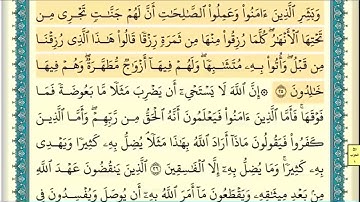 وَبَشِّرِ ٱلَّذِينَ ءَامَنُوا۟ وَعَمِلُوا۟ ٱلصَّـٰلِحَـٰتِ أَنَّ لَهُمْ جَنَّـٰتٍ تَجْرِى مِن
تَحْتِهَا ٱلْأَنْهَـٰرُ ۖ كُلَّمَا رُزِقُوا۟ مِنْهَا مِن ثَمَرَةٍ رِّزْقًا قَالُوا۟ هَـٰذَا ٱلَّذِى رُزِقْنَا
مِن قَبْلُ ۖ وَأُتُوا۟ بِهِۦ مُتَشَـٰبِهًا ۖ وَلَهُمْ فِيهَآ أَزْوَٰجٌ مُّطَهَّرَةٌ ۖ وَهُمْ فِيهَا
خَـٰلِدُونَ ٢٥ ۞ إِنَّ ٱللَّهَ لَا يَسْتَحْىِۦٓ أَن يَضْرِبَ مَثَلًا مَّا بَعُوضَةً فَمَا
فَوْقَهَا ۚ فَأَمَّا ٱلَّذِينَ ءَامَنُوا۟ فَيَعْلَمُونَ أَنَّهُ ٱلْحَقُّ مِن رَّبِّهِمْ ۖ وَأَمَّا ٱلَّذِينَ
كَفَرُوا۟ فَيَقُولُونَ مَاذَآ أَرَادَ ٱللَّهُ بِهَـٰذَا مَثَلًا ۘ يُضِلُّ بِهِۦ كَثِيرًا وَيَهْدِى
بِهِۦ كَثِيرًا ۚ وَمَا يُضِلُّ بِهِۦٓ إِلَّا ٱلْفَـٰسِقِينَ ٢٦ ٱلَّذِينَ يَنقُضُونَ عَهْدَ ٱللَّهِ
مِنۢ بَعْدِ مِيثَـٰقِهِۦ وَيَقْطَعُونَ مَآ أَمَرَ ٱللَّهُ بِهِۦٓ أَن يُوصَلَ وَيُفْسِدُونَ فِى